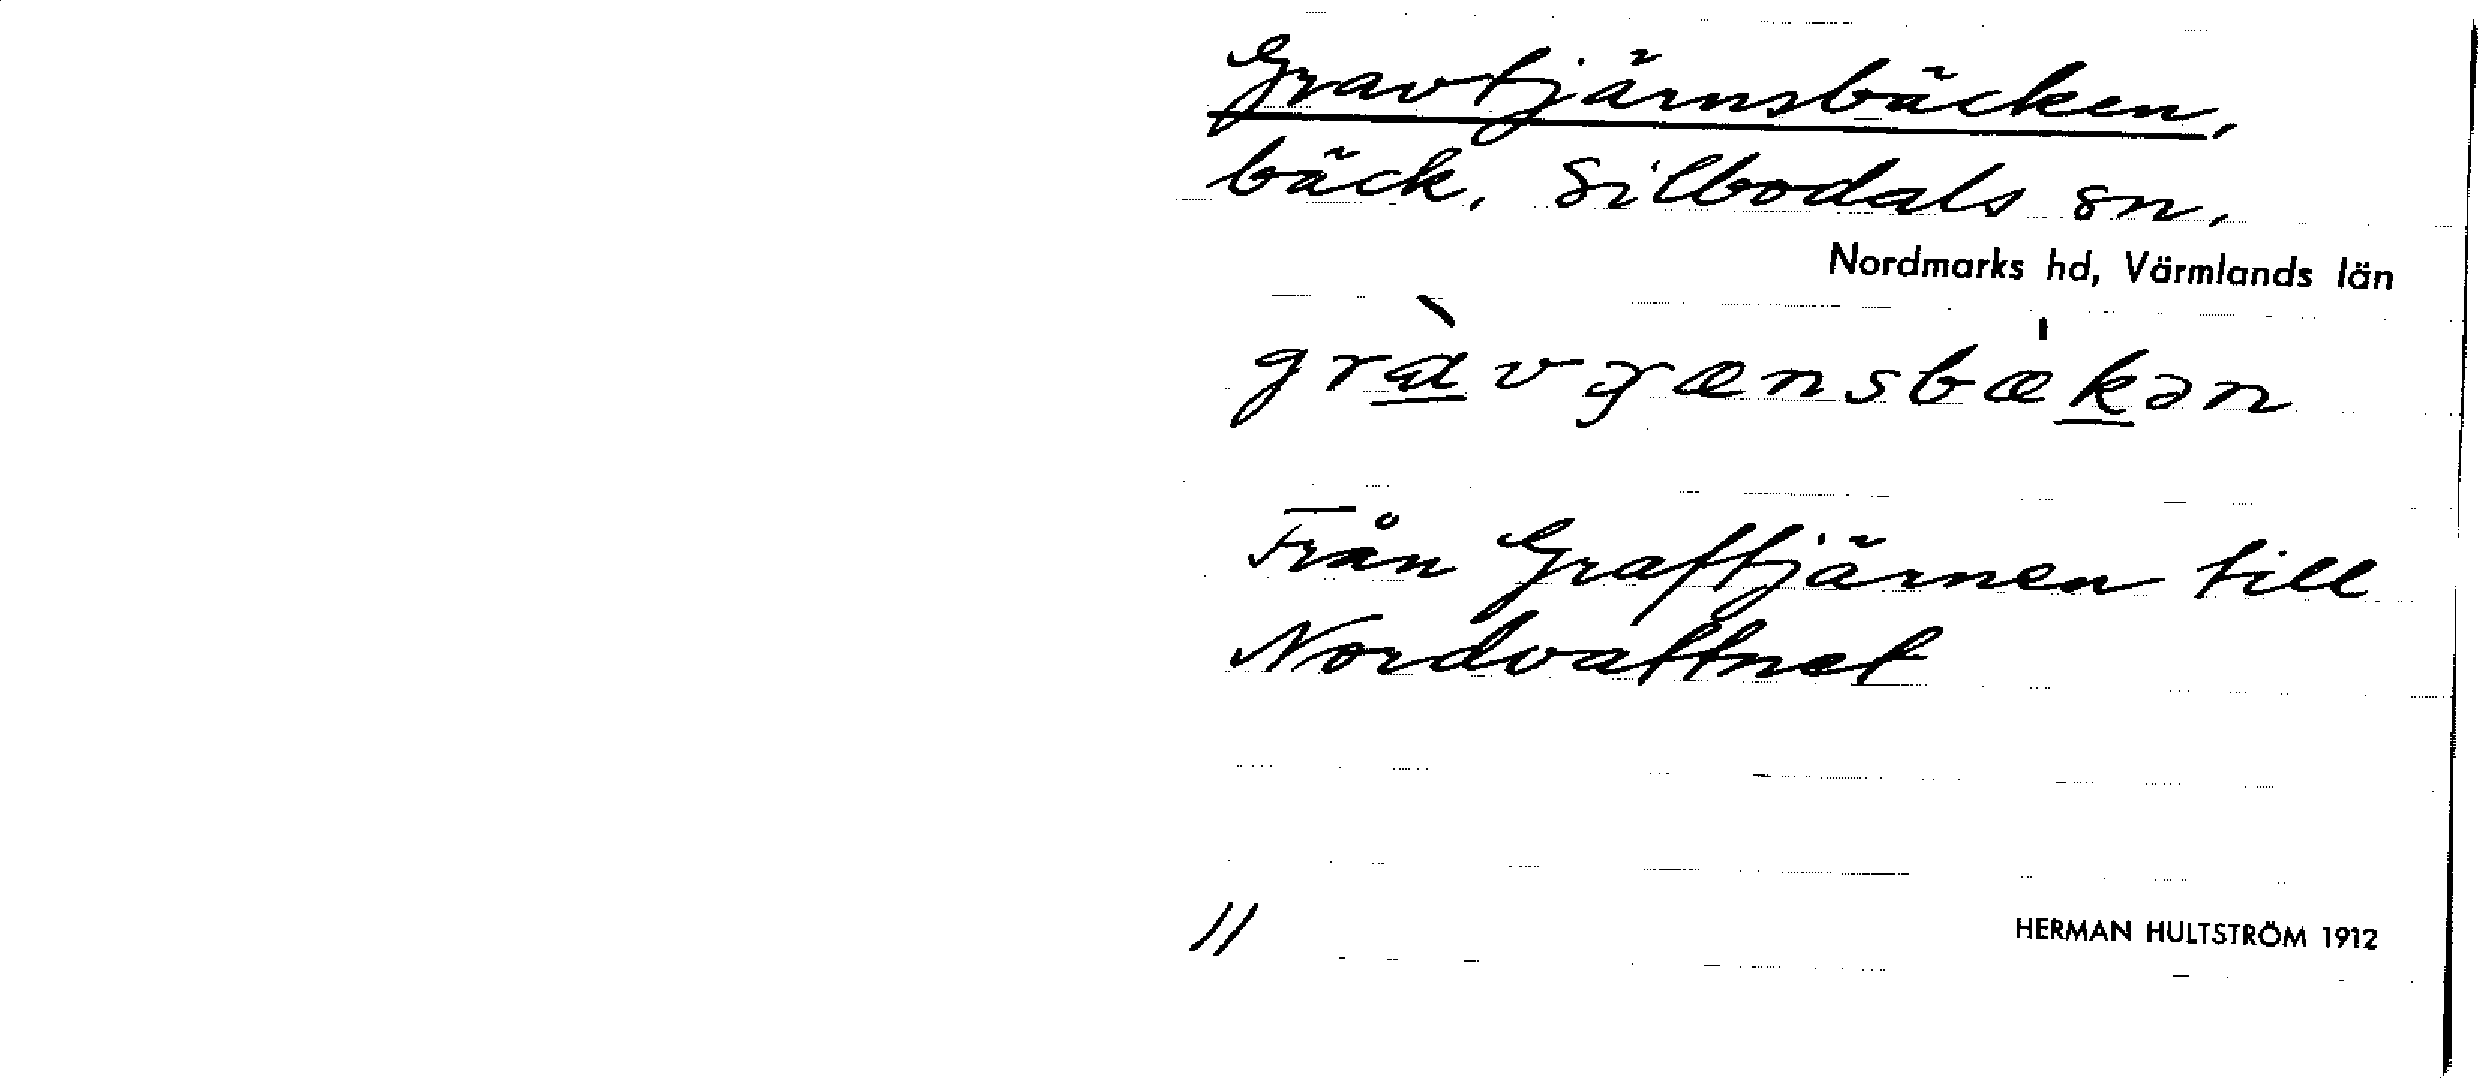 Gravtjärnsbäcken,
bäck, Silbodals sn,
Nordmarks hd, Värmlands län
Från Graftjärnen till
Nordvattnet
11
HERMAN HULTSTRÖM 1912